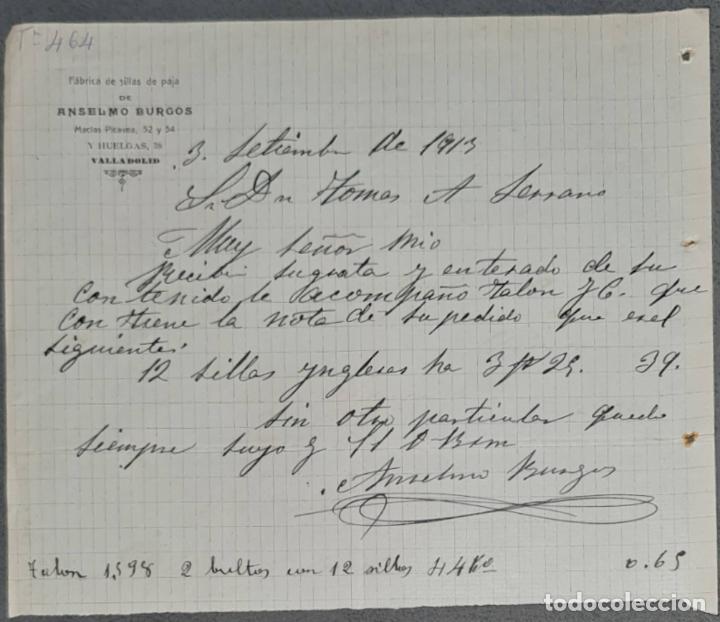 Tº 464
Fábrica de sillas de paja
DE
ANSELMO BURGOS
Macías Picavea, 52 y 54
Y HUELGAS, 28
VALLADOLID
3. Setiembre de 1913
Sr Dn Tomas A Serrano
Muy Señor Mio
Recibi su grata y enterado de su
contenido le acompaño talon f C. que
contiene la nota de su pedido que es el
siguiente:
12 sillas ynglesas ha 3 pt 25. 39.
sin otro particular quedo
siempre suyo y SS Q B s m
Anselmo Burgos
Talon 1.598 2 bultos con 12 sillas 44 Ko 0.65
todocoleccion.net